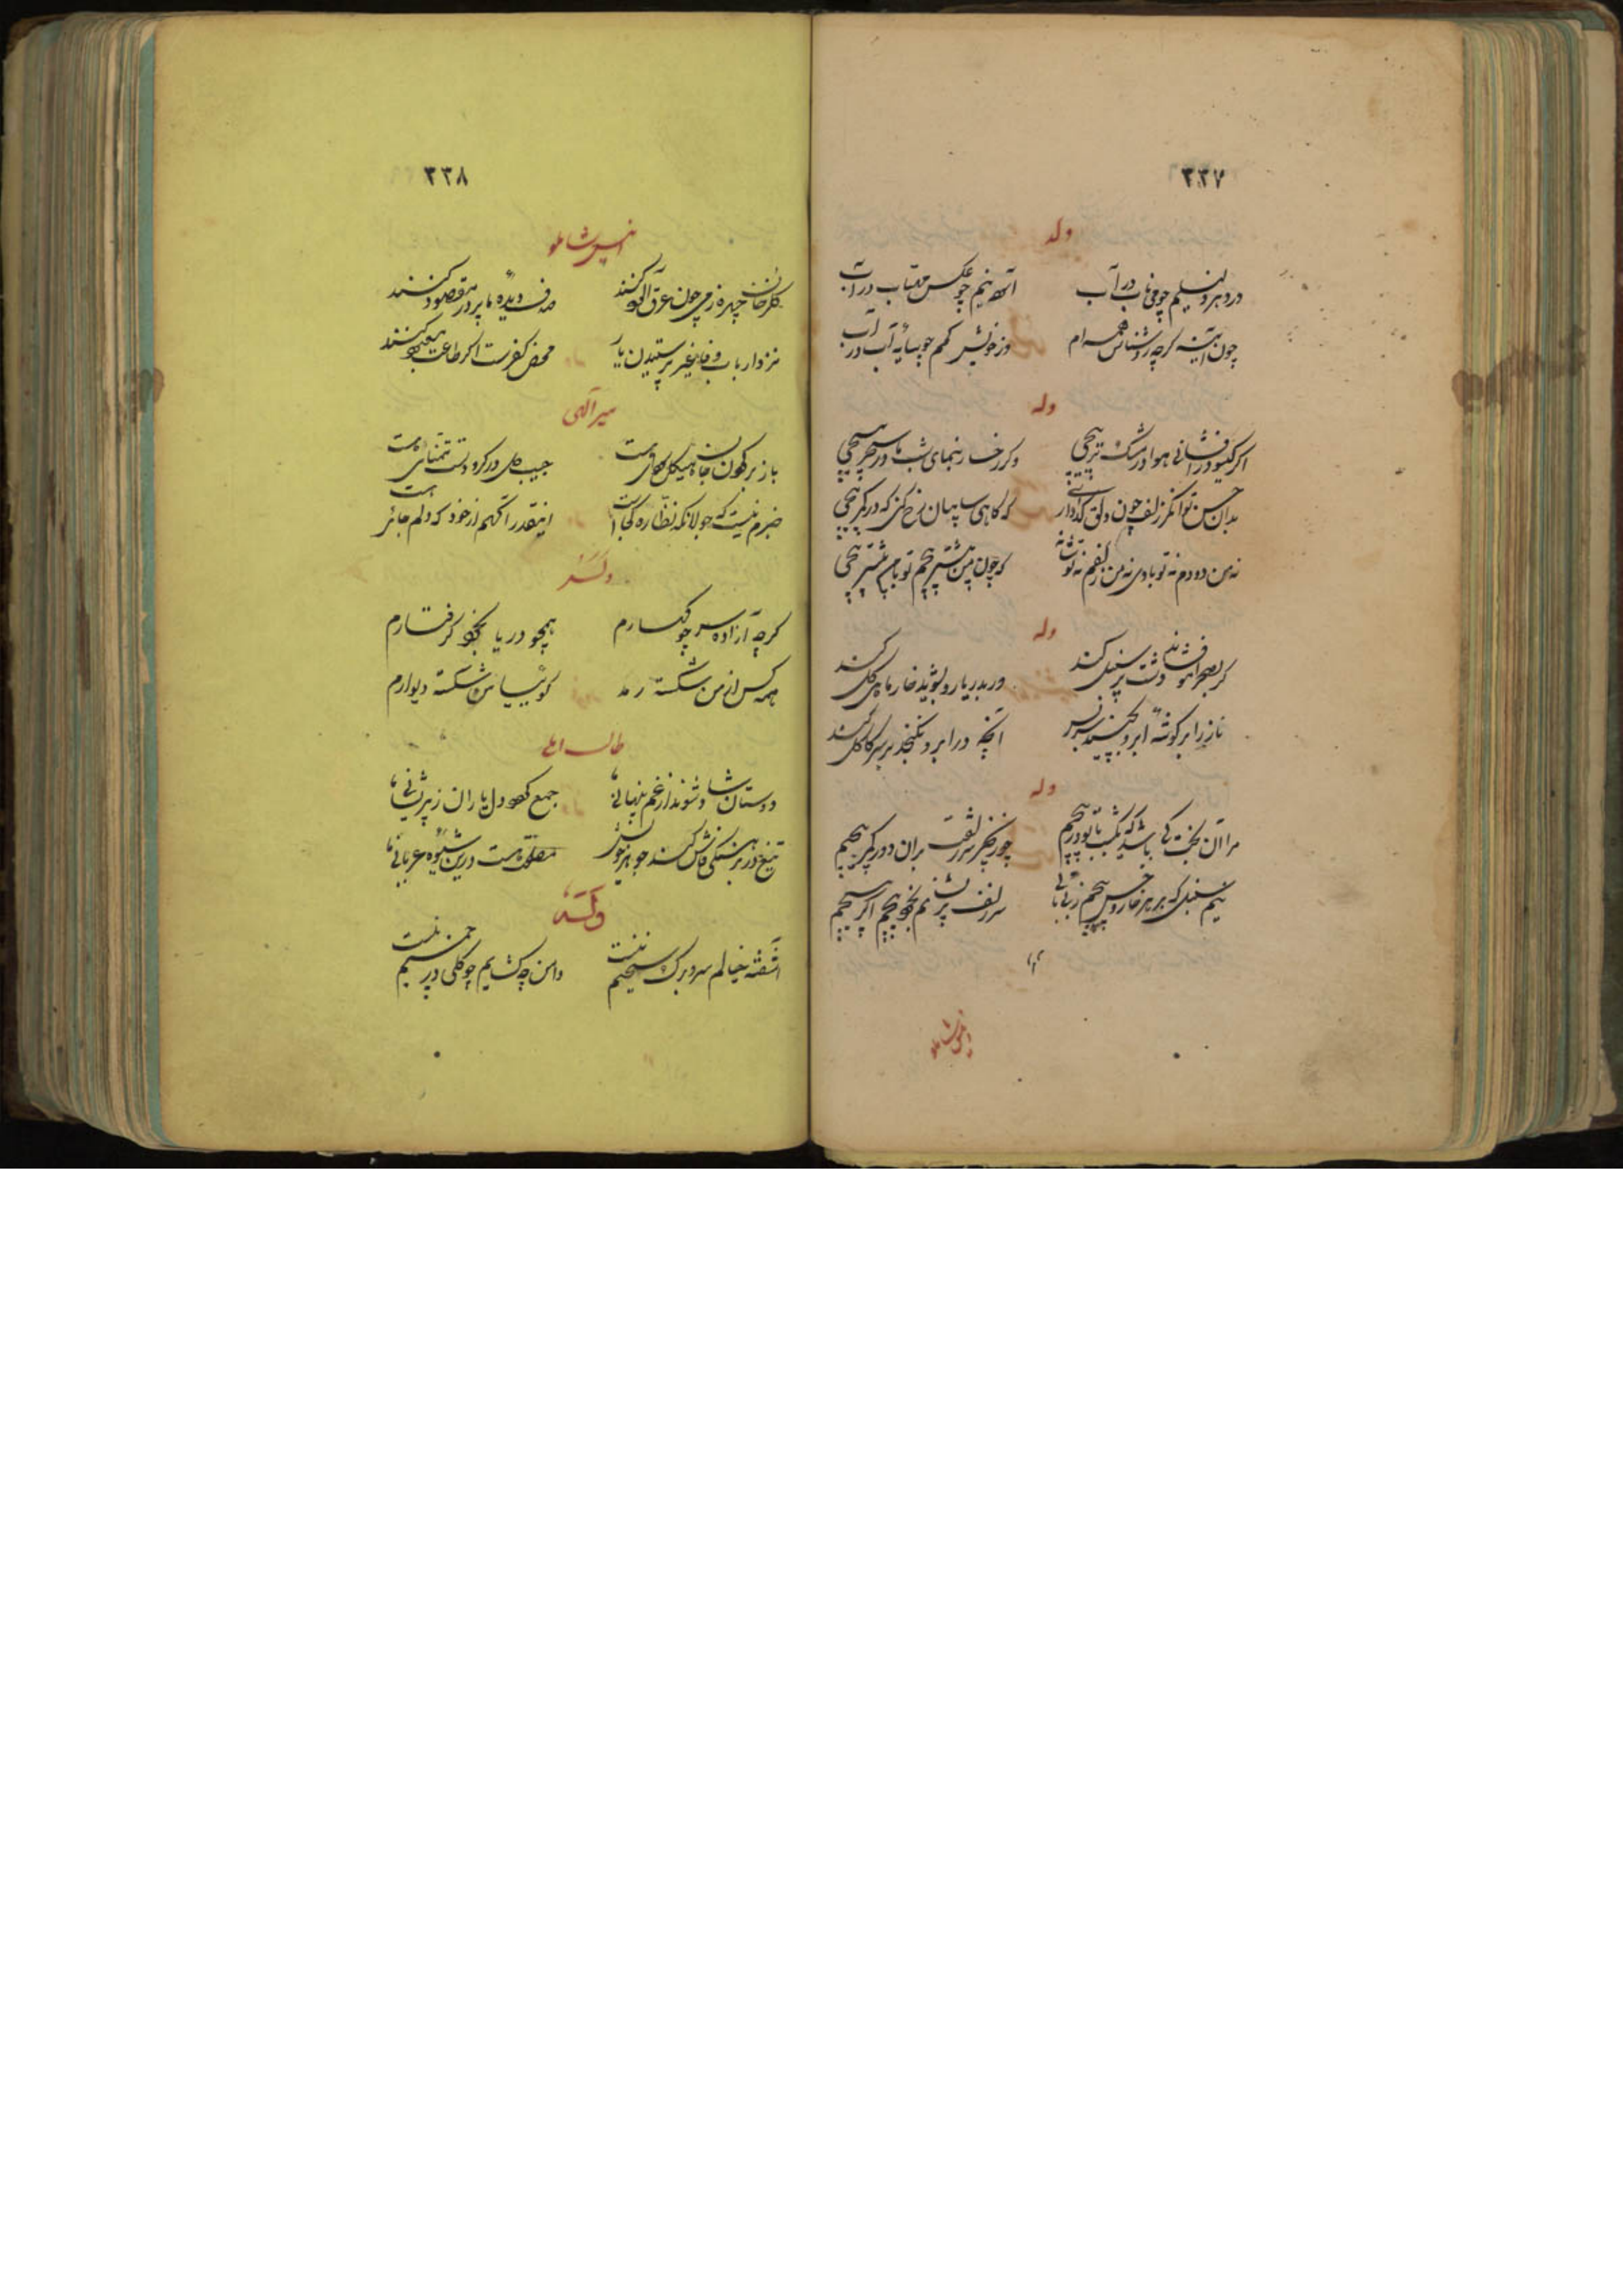 ۳۳۷
وله
در دهر دلسلیم چو ماب در آب
آتیم چو عکس مهتاب در آب
چون آینه گرچه روشناس همه ام
در خویش گمم چو سایه آب در آب
وله
اگر گیسو در افشانی هوا در مشک تر پیچی
وگر رخسار بنمای شب ما در سحر پیچی
بدان حسن توانگر زلف چون دلق گدا دار
که گاهی سایبان رخ کنی که در کمر پیچی
نه من دودم نه تو بادی نه من زلفم نه تو شانه
که چون من بیشتر پیچم تو با من بیشتر پیچی
وله
گر بصحرا مو فشاند دشت پر سنبل کند
ور بدریا رو بشوید خار ماهی گل کند
ناز را بر گوشه ابرو
آنچه در ابرو نگنجد بر سر کاکل کند
وله
مرا آن بخت کی باشد که یکشب با تو در پیچم
چو زنجیر سر زلفت بران دور کمر پیچم
نیم سنبل که بر هر خار و خس پیچم
سر زلف پریشانم بخود پیچم اگر پیچم
انیس شاملو
۳۳۸
انیس شاملو
گلرخان چهره ز می چون عرق آلود کنند
صدف دیده ما پر در مقصود کنند
نزد ارباب وفا غیر پرستیدن یار
محض کفرست اگر طاعت معبود کنند
میر الهی
باز بر گردن جان هیکل سودای هست
جیب دل در گرو دست تمنای هست
خبرم نیست که جولانگه نظاره کجاست
اینقدر آگهم از خود که دلم جائی است
وله
گرچه آزاده سر چو کهسارم
همچو دریا بخود گرفتارم
همه کس از من شکسته رمد
گوئیا من شکسته دیوارم
طالب املی
دوستان شاد شوند از غم پنهانی ما
جمع گردد دل یاران ز پریشانی ما
تیغ در برهنگی فاش کند جوهر خویش
مصلحتهاست درین شیوه عریانی ما
وله
آشفته خیالم سر و برگ سخنم نیست
دامن چه گشایم چو گلی در چمنم نیست